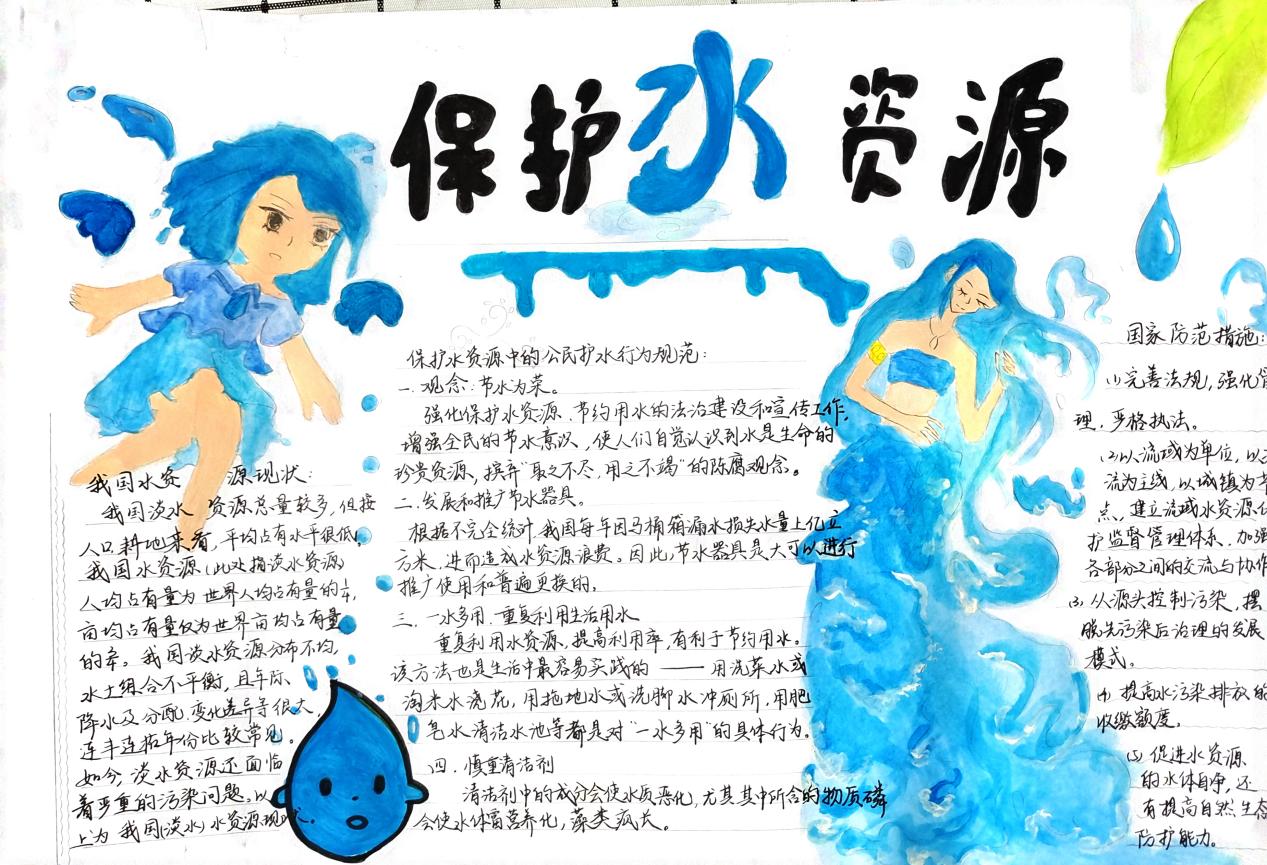 保护水资源
我国水资源现状:
我国淡水资源总量较多,但按
人口、耕地来看,平均占有水平很低。
我国水资源(此处指淡水资源)
人均占有量为世界人均占有量的
亩均占有量仅为世界亩均占有量
的。我国淡水资源分布不均,
水土组合不平衡,且年际、
降水及分配,变化差异等很大,
连丰连枯年份比较常见。
如今,淡水资源还面临
着严重的污染问题。以
上为我国(淡水)水资源现
保护水资源中的公民护水行为规范:
一.观念:节水为荣。
强化保护水资源、节约用水的法治建设和宣传工作,
增强全民的节水意识,使人们自觉认识到水是生命的
珍贵资源,摈弃“取之不尽,用之不竭”的陈腐观念。
二.发展和推广节水器具。
根据不完全统计,我国每年因马桶箱漏水损失水量上亿立
方米,进而造成水资源浪费。因此,节水器具是大可以进行
推广使用和普遍更换的,
三.一水多用,重复利用生活用水
重复利用水资源,提高利用率,有利于节约用水。
该方法也是生活中最容易实践的——用洗菜水或
淘米水浇花,用拖地水或洗脚水冲厕所,用肥
皂水清洁水池等都是对“一水多用”的具体行为。
四.慎重清洁剂
清洁剂中的成分会使水质恶化,尤其其中所含的物质磷
会使水体富营养化,藻类疯长。
国家防范措施:
(1)完善法规,强化管
理,严格执法。
(2)以流域为单位,以
流为主线,以城镇为节
点,建立流域水资源
护监督管理体系,加强
各部分之间的交流与协作
(3)从源头控制污染,摆
脱先污染后治理的发展
模式。
(4)提高水污染排放的
收缴额度。
(5)促进水资源
的水体自净,还
有提高自然生态
防护能力。